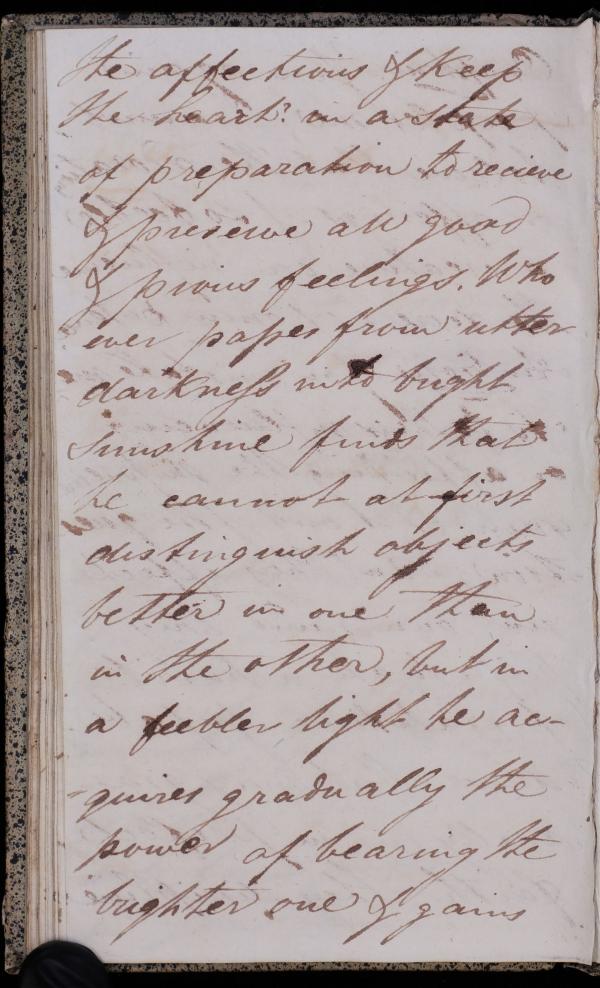 the affections & keep
the heart? in a state
of preparation to recieve
& preserve all good
& pious feelings. Who
ever passes from utter
darkness into bright
sunshine finds that
he cannot at first
distinguish objects
better in one than
in the other, but in
a feebler light he ac-
-quires gradually the
power of bearing the
brighter one & gains